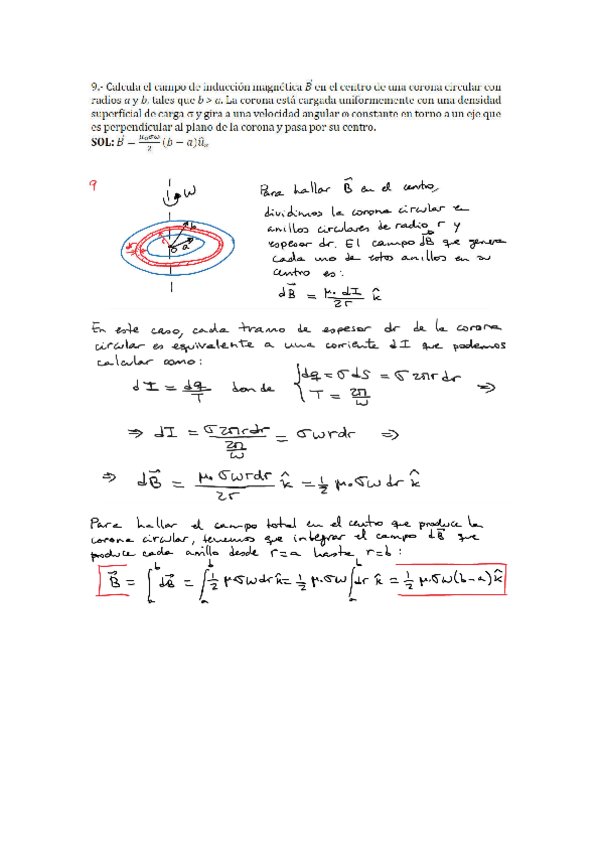 9.- Calcula el campo de inducción magnética B⃗ en el centro de una corona circular con
radios a y b, tales que b > a. La corona está cargada uniformemente con una densidad
superficial de carga σ y gira a una velocidad angular ω constante en torno a un eje que
es perpendicular al plano de la corona y pasa por su centro.
SOL: B⃗ = μ₀σω/2 (b − a)û𝑧
9
ω
b
a
r
dr
Para hallar B⃗ en el centro,
dividimos la corona circular en
anillos circulares de radio r y
espesor dr. El campo dB⃗ que genera
cada uno de estos anillos en su
centro es:
dB⃗ = μ₀ dI/2r k̂
En este caso, cada tramo de espesor dr de la corona
circular es equivalente a una corriente dI que podemos
calcular como:
dI = dq/T donde { dq = σ dS = σ 2πr dr ⇒
T = 2π/ω
⇒ dI = σ2πrdr/(2π/ω) = σωrdr ⇒
⇒ dB⃗ = μ₀σωrdr/2r k̂ = 1/2 μ₀σω dr k̂
Para hallar el campo total en el centro que produce la
corona circular, tenemos que integrar el campo dB⃗ que
produce cada anillo desde r=a hasta r=b:
B⃗ = ∫ₐᵇ dB⃗ = ∫ₐᵇ 1/2 μ₀σω dr k̂ = 1/2 μ₀σω ∫ₐᵇ dr k̂ = 1/2 μ₀σω(b−a)k̂